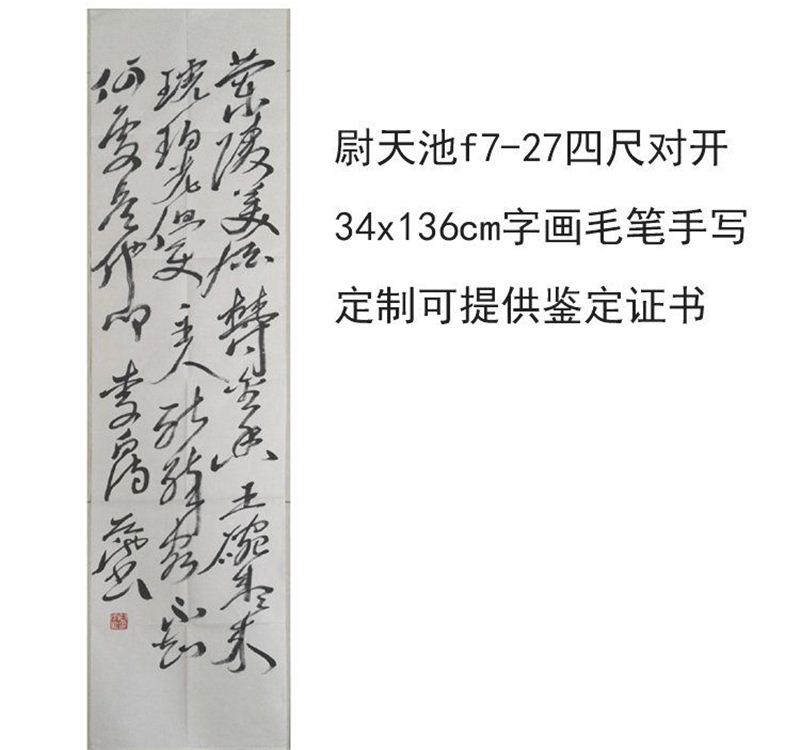 蘭陵美酒鬱金香玉碗盛来
琥珀光但使主人能醉客不知
何處是他鄉李白詩天池书
尉天池f7-27四尺对开
34x136cm字画毛笔手写
定制可提供鉴定证书